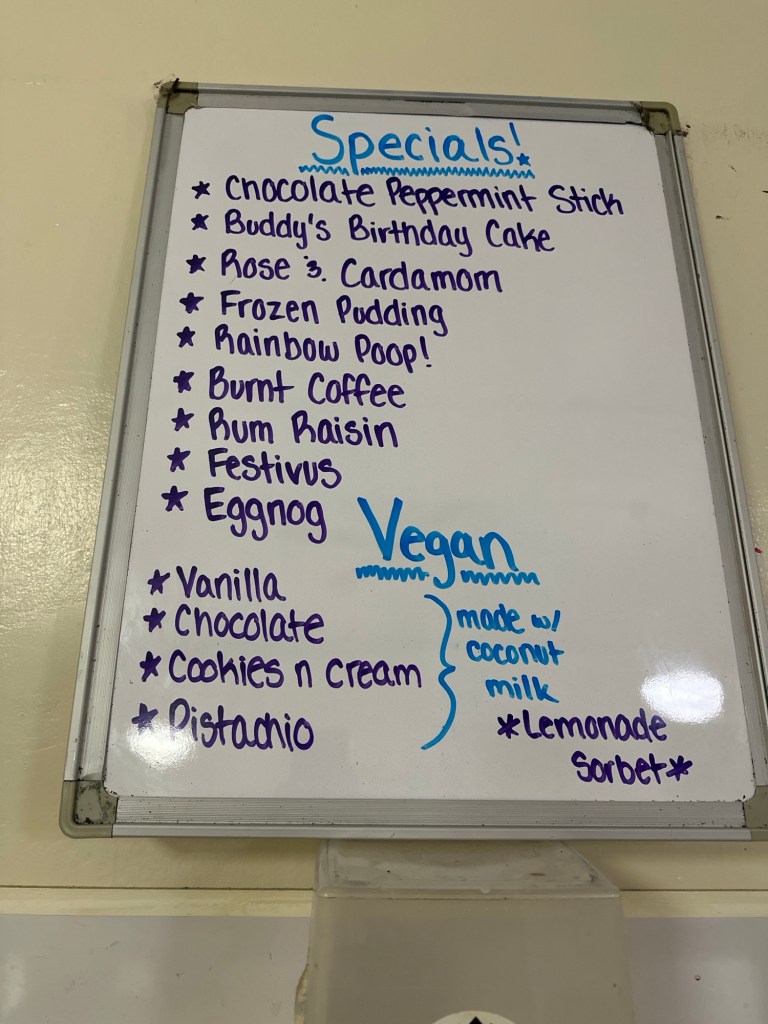 Specials!
* Chocolate Peppermint Stick
* Buddy's Birthday Cake
* Rose & Cardamom
* Frozen Pudding
* Rainbow Poop!
* Burnt Coffee
* Rum Raisin
* Festivus
* Eggnog
Vegan
* Vanilla
* Chocolate
* Cookies n Cream
* Pistachio
made w/
coconut
milk
*Lemonade
Sorbet*